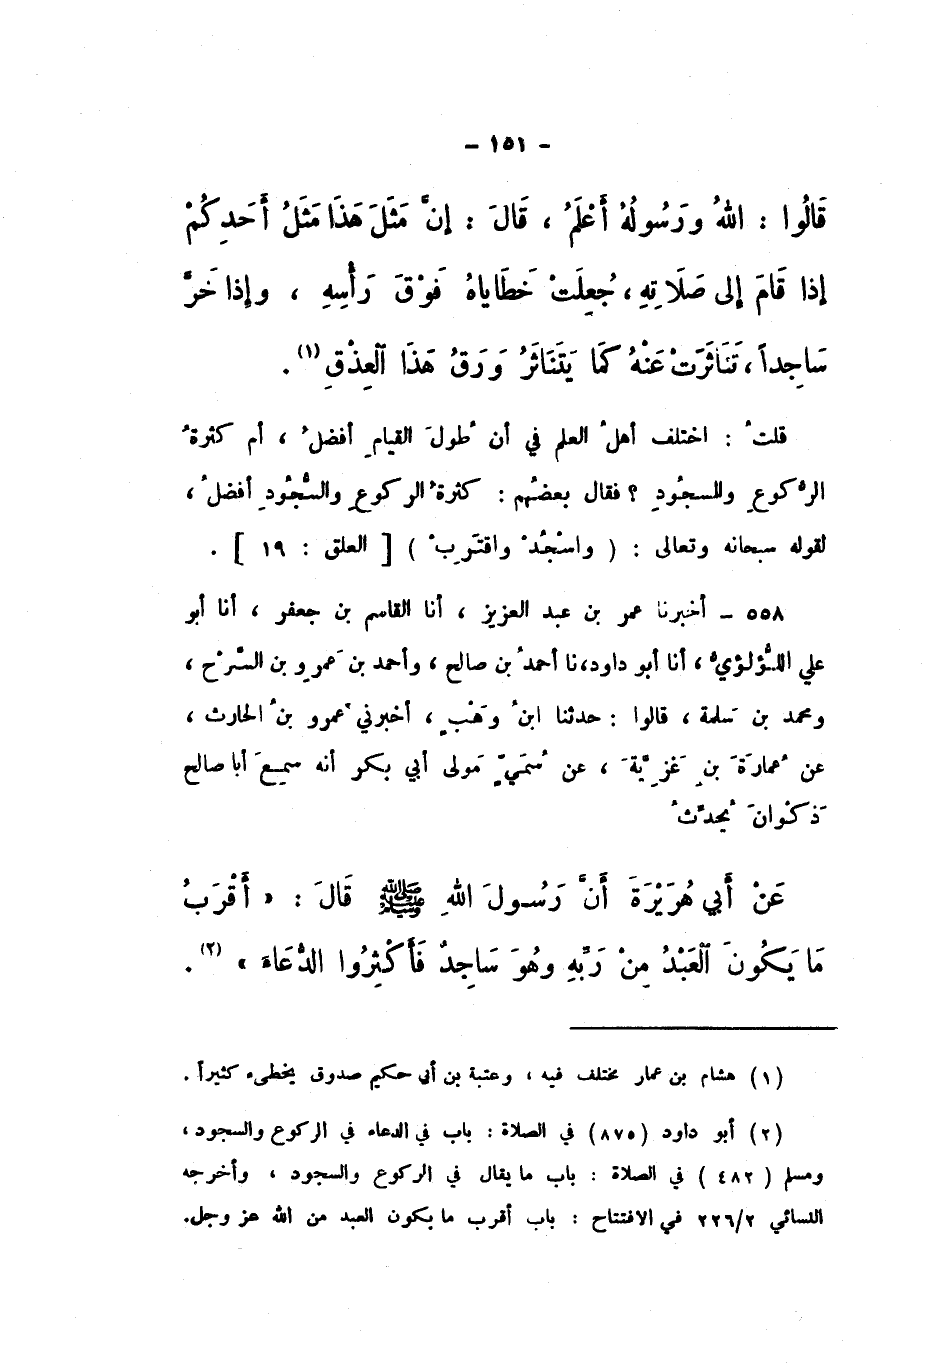 - ١٥١ -
قَالُوا : اللهُ ورَسُولُهُ أَعْلَمُ ، قَالَ : إنَّ مَثَلَ هَذَا مَثَلُ أَحَدِكُمْ
إذا قَامَ إلى صَلَاتِهِ ، جُعِلَتْ خَطَاياهُ فَوْقَ رَأْسِهِ ، وإذا خَرَّ
سَاجِداً ، تَنَاثَرَتْ عَنْهُ كَمَا يَتَنَاثَرُ وَرَقُ هَذَا الْعِذْقِ (١) .
قلتُ : اختلف أهلُ العلم في أن طُولَ القيامِ أفضلُ ، أم كثرةُ
الرُّكوعِ والسجُودِ ؟ فقال بعضُهم : كثرةُ الركوعِ والسُّجُودِ أفضلُ ،
لقوله سبحانه وتعالى : ( واسْجُدْ واقتَرِبْ ) [ العلق : ١٩ ] .
٥٥٨ – أخبرنا عمر بن عبد العزيز ، أنا القاسم بن جعفر ، أنا أبو
علي اللُّؤلؤيُّ ، أنا أبو داود، نا أحمدُ بن صالح ، وأحمد بن عَمرو بن السَّرْح ،
ومحمد بن سَلمة ، قالوا : حدثنا ابنُ وَهْبٍ ، أخبرني عَمرو بنُ الحارث ،
عن عُمارَةَ بنِ غَزِيَّةَ ، عن سُمَيٍّ مَولى أبي بكر أنه سمِعَ أبا صالح
ذَكْوانَ يُحدِّثُ
عَنْ أَبي هُرَيْرَةَ أَنَّ رَسُولَ اللهِ ﷺ قَالَ : « أَقْرَبُ
مَا يَكُونُ الْعَبْدُ مِنْ رَبِّهِ وهُوَ سَاجِدٌ فَأَكْثِرُوا الدُّعَاءَ » (٢) .
(١) هشام بن عمار مختلف فيه ، وعتبة بن أبي حكيم صدوق يخطىء كثيراً .
(٢) أبو داود (٨٧٥) في الصلاة : باب في الدعاء في الركوع والسجود ،
ومسلم ( ٤٨٢ ) في الصلاة : باب ما يقال في الركوع والسجود ، وأخرجه
النسائي ٢٢٦/٢ في الافتتاح : باب أقرب ما يكون العبد من الله عز وجل.